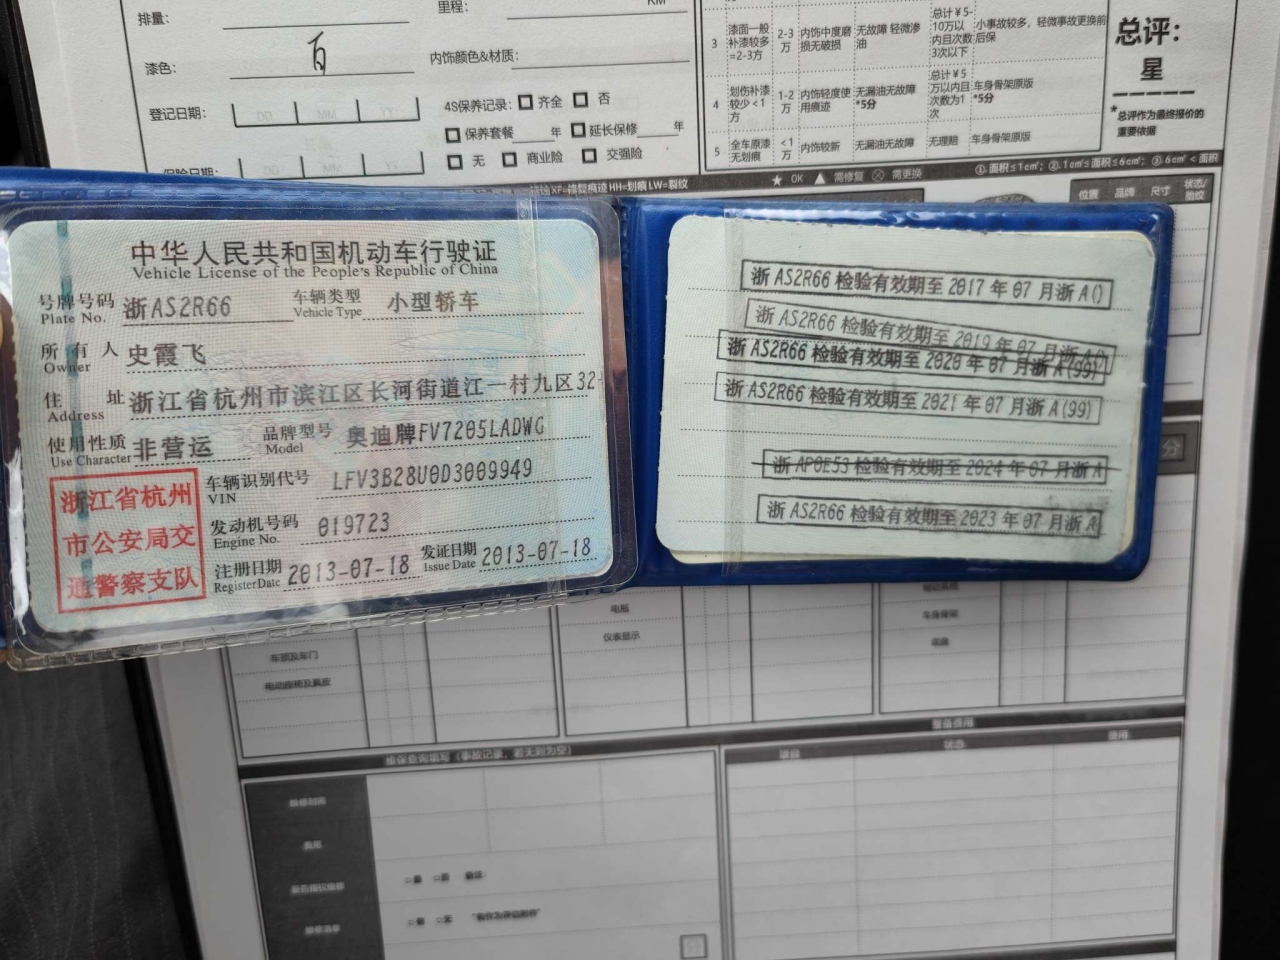 排量:
里程:
KM
漆色:
百
内饰颜色&材质:
登记日期:
4S保养记录: 齐全 否
保养套餐 年 延长保修 年
无 商业险 交强险
保险日期:
3 漆面一般补漆较多=2-3方 2-3万 内饰中度磨损无破损 无故障 轻微渗油 总计¥5-10万以内且次数3次以下 小事故较多,轻微事故更换前后保
4 划伤补漆较少<1方 1-2万 内饰轻度使用痕迹 无漏油无故障*5分 总计¥5万以内且次数为1次 车身骨架原版*5分
5 全车原漆无划痕 <1万 内饰较新 无漏油无故障 无理赔 车身骨架原版
总评:
星
*总评作为最终报价的重要依据
XF=修复痕迹 HH=划痕 LW=裂纹
★ OK ▲ 需修复 ⊗ 需更换
①.面积≤1cm²; ②.1cm²≤面积≤6cm²; ③.6cm²<面积
位置 品牌 尺寸 状态/胎纹
中华人民共和国机动车行驶证
Vehicle License of the People's Republic of China
号牌号码 浙AS2R66 车辆类型 小型轿车
Plate No. Vehicle Type
所有人 史霞飞
Owner
住址 浙江省杭州市滨江区长河街道江一村九区32
Address
使用性质 非营运 品牌型号 奥迪牌FV7205LADWG
Use Character Model
浙江省杭州市公安局交通警察支队
车辆识别代号 LFV3B28U0D3009949
VIN
发动机号码 019723
Engine No.
注册日期 2013-07-18 发证日期 2013-07-18
Register Date Issue Date
浙AS2R66 检验有效期至 2017 年 07 月浙A()
浙AS2R66 检验有效期至 2019 年 07 月浙A()
浙AS2R66 检验有效期至 2020 年 07 月浙A(99)
浙AS2R66 检验有效期至 2021 年 07 月浙A(99)
浙AP0E53 检验有效期至 2024 年 07 月浙A
浙AS2R66 检验有效期至 2023 年 07 月浙A
分
电瓶
仪表显示
车身骨架
底盘
车顶及车门
电动座椅及真皮
维保查询填写(事故记录,若无则为空)
整备费用
项目 状态 费用
维修时间
费用
维修清单